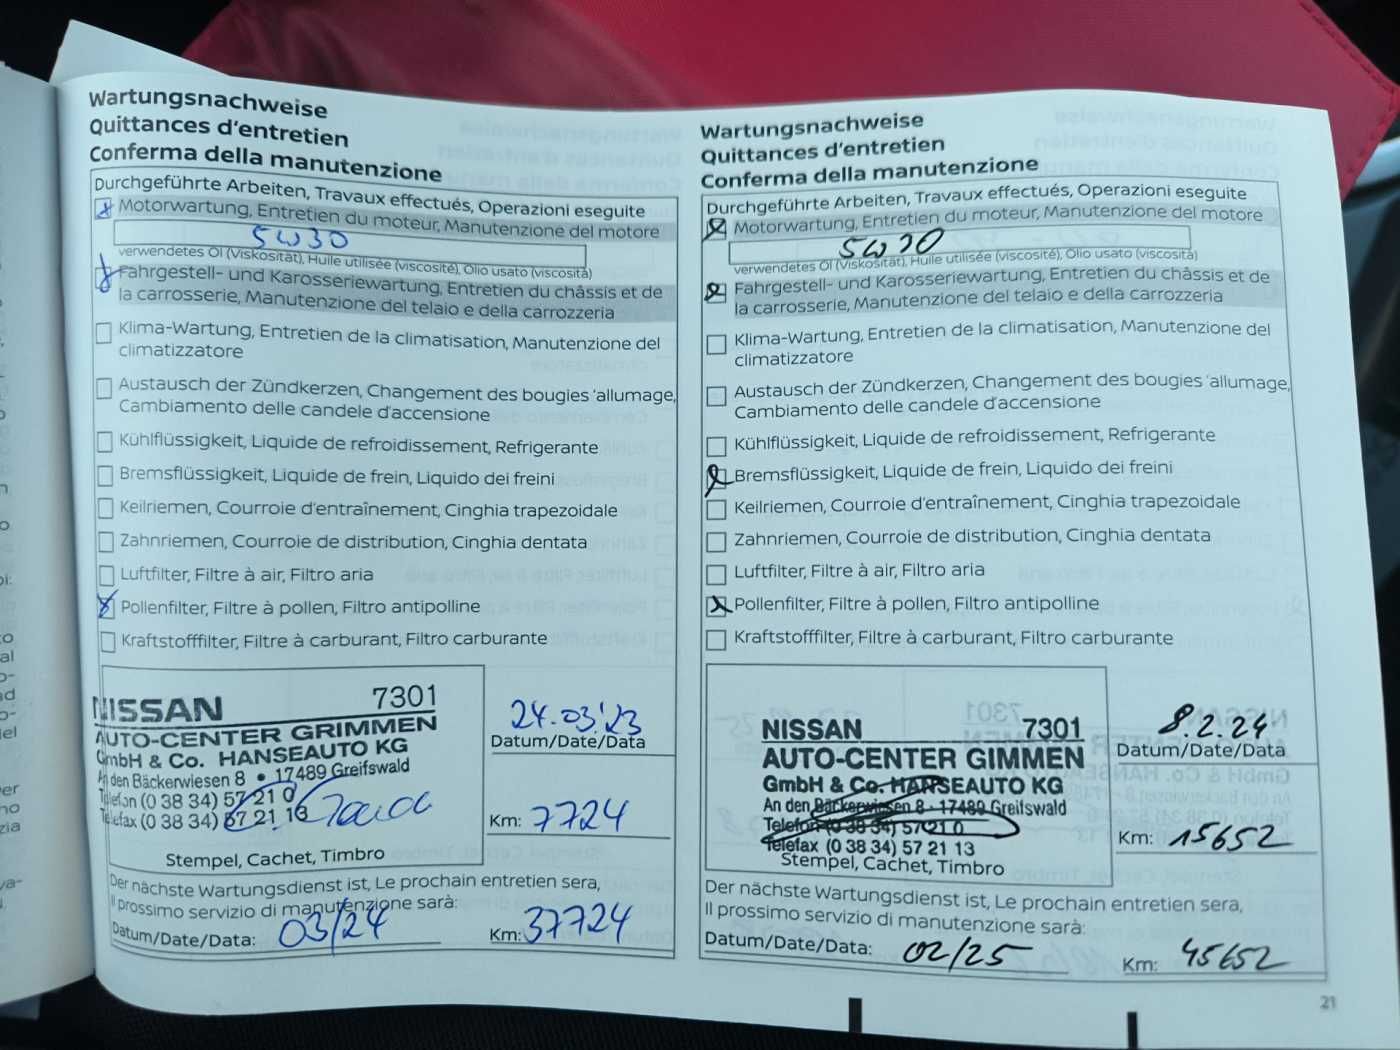 Wartungsnachweise
Quittances d'entretien
Conferma della manutenzione
Durchgeführte Arbeiten, Travaux effectués, Operazioni eseguite
Motorwartung, Entretien du moteur, Manutenzione del motore
5W30
verwendetes Öl (Viskosität), Huile utilisée (viscosité), Olio usato (viscosità)
Fahrgestell- und Karosseriewartung, Entretien du châssis et de
la carrosserie, Manutenzione del telaio e della carrozzeria
Klima-Wartung, Entretien de la climatisation, Manutenzione del
climatizzatore
Austausch der Zündkerzen, Changement des bougies 'allumage,
Cambiamento delle candele d'accensione
Kühlflüssigkeit, Liquide de refroidissement, Refrigerante
Bremsflüssigkeit, Liquide de frein, Liquido dei freini
Keilriemen, Courroie d'entraînement, Cinghia trapezoidale
Zahnriemen, Courroie de distribution, Cinghia dentata
Luftfilter, Filtre à air, Filtro aria
Pollenfilter, Filtre à pollen, Filtro antipolline
Kraftstofffilter, Filtre à carburant, Filtro carburante
NISSAN 7301
AUTO-CENTER GRIMMEN
GmbH & Co. HANSEAUTO KG
An den Bäckerwiesen 8 • 17489 Greifswald
Telefon (0 38 34) 57 21 0
Telefax (0 38 34) 57 21 13
Stempel, Cachet, Timbro
24.03.'23
Datum/Date/Data
Km: 7724
Der nächste Wartungsdienst ist, Le prochain entretien sera,
Il prossimo servizio di manutenzione sarà:
Datum/Date/Data: 03/24 Km: 37724
Wartungsnachweise
Quittances d'entretien
Conferma della manutenzione
Durchgeführte Arbeiten, Travaux effectués, Operazioni eseguite
Motorwartung, Entretien du moteur, Manutenzione del motore
5W30
verwendetes Öl (Viskosität), Huile utilisée (viscosité), Olio usato (viscosità)
Fahrgestell- und Karosseriewartung, Entretien du châssis et de
la carrosserie, Manutenzione del telaio e della carrozzeria
Klima-Wartung, Entretien de la climatisation, Manutenzione del
climatizzatore
Austausch der Zündkerzen, Changement des bougies 'allumage,
Cambiamento delle candele d'accensione
Kühlflüssigkeit, Liquide de refroidissement, Refrigerante
Bremsflüssigkeit, Liquide de frein, Liquido dei freini
Keilriemen, Courroie d'entraînement, Cinghia trapezoidale
Zahnriemen, Courroie de distribution, Cinghia dentata
Luftfilter, Filtre à air, Filtro aria
Pollenfilter, Filtre à pollen, Filtro antipolline
Kraftstofffilter, Filtre à carburant, Filtro carburante
NISSAN 7301
AUTO-CENTER GIMMEN
GmbH & Co. HANSEAUTO KG
An den Bäckerwiesen 8 · 17489 Greifswald
Telefon (0 38 34) 57 21 0
Telefax (0 38 34) 57 21 13
Stempel, Cachet, Timbro
8.2.24
Datum/Date/Data
Km: 15652
Der nächste Wartungsdienst ist, Le prochain entretien sera,
Il prossimo servizio di manutenzione sarà:
Datum/Date/Data: 02/25 Km: 45652
21